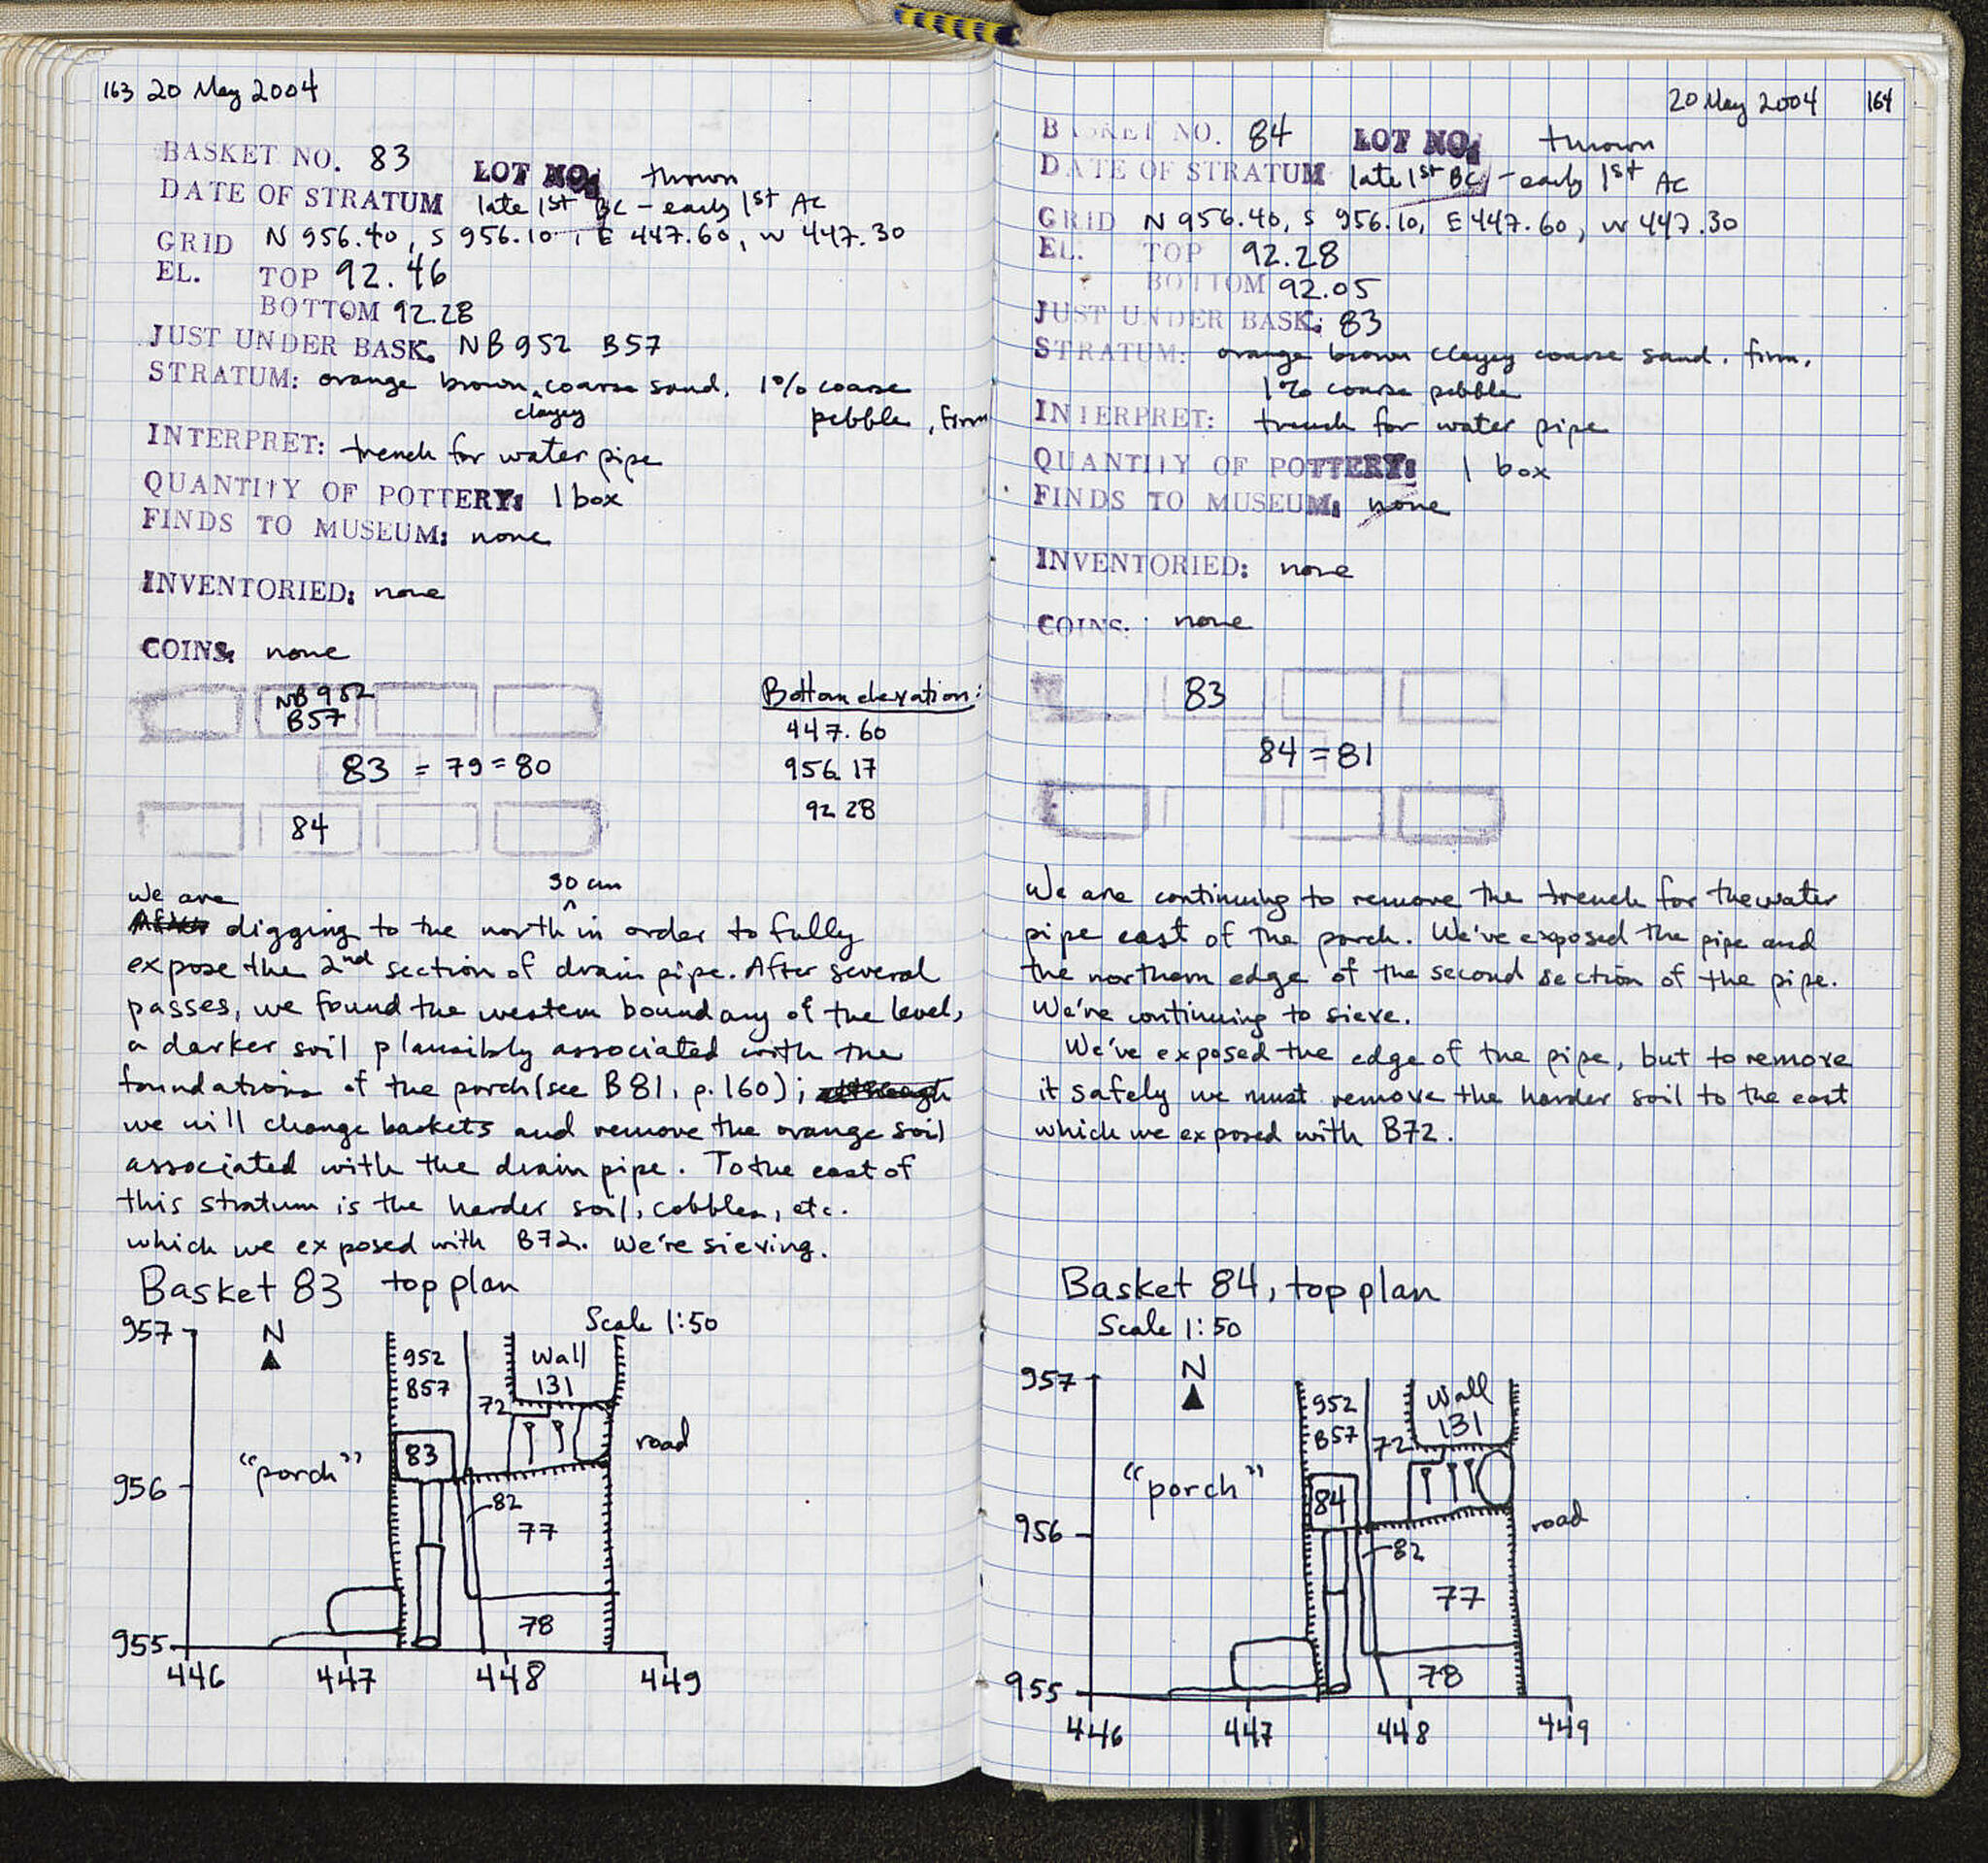 163 20 May 2004
BASKET NO. 83 LOT NO. thrown
DATE OF STRATUM late 1st BC - early 1st AC
GRID N 956.40, S 956.10, E 447.60, W 447.30
EL. TOP 92.46
BOTTOM 92.28
JUST UNDER BASK. NB952 B57
STRATUM: orange brown clayey coarse sand. 1% coarse
pebble, firm
INTERPRET: trench for water pipe
QUANTITY OF POTTERY: 1 box
FINDS TO MUSEUM: none
INVENTORIED: none
COINS: none
NB 952
B57
83 = 79 = 80
84
Bottom elevation:
447.60
956.17
92.28
We are digging to the north 30 cm in order to fully
expose the 2nd section of drain pipe. After several
passes, we found the western boundary of the level,
a darker soil plausibly associated with the
foundations of the porch (see B81, p.160);
we will change baskets and remove the orange soil
associated with the drain pipe. To the east of
this stratum is the harder soil, cobbles, etc.
which we exposed with B72. We're sieving.
Basket 83 top plan
Scale 1:50
957
N
952
B57
Wall
131
72
83
road
"porch"
956
82
77
78
955
446 447 448 449
20 May 2004 164
BASKET NO. 84 LOT NO. thrown
DATE OF STRATUM late 1st BC - early 1st AC
GRID N 956.40, S 956.10, E 447.60, W 447.30
EL. TOP 92.28
BOTTOM 92.05
JUST UNDER BASK: 83
STRATUM: orange brown clayey coarse sand. firm.
1% coarse pebble
INTERPRET: trench for water pipe
QUANTITY OF POTTERY: 1 box
FINDS TO MUSEUM: none
INVENTORIED: none
COINS: none
83
84 = 81
We are continuing to remove the trench for the water
pipe east of the porch. We've exposed the pipe and
the northern edge of the second section of the pipe.
We're continuing to sieve.
We've exposed the edge of the pipe, but to remove
it safely we must remove the harder soil to the east
which we exposed with B72.
Basket 84, top plan
Scale 1:50
957
N
952
B57
Wall
131
72
"porch"
84
956
road
82
77
78
955
446 447 448 449